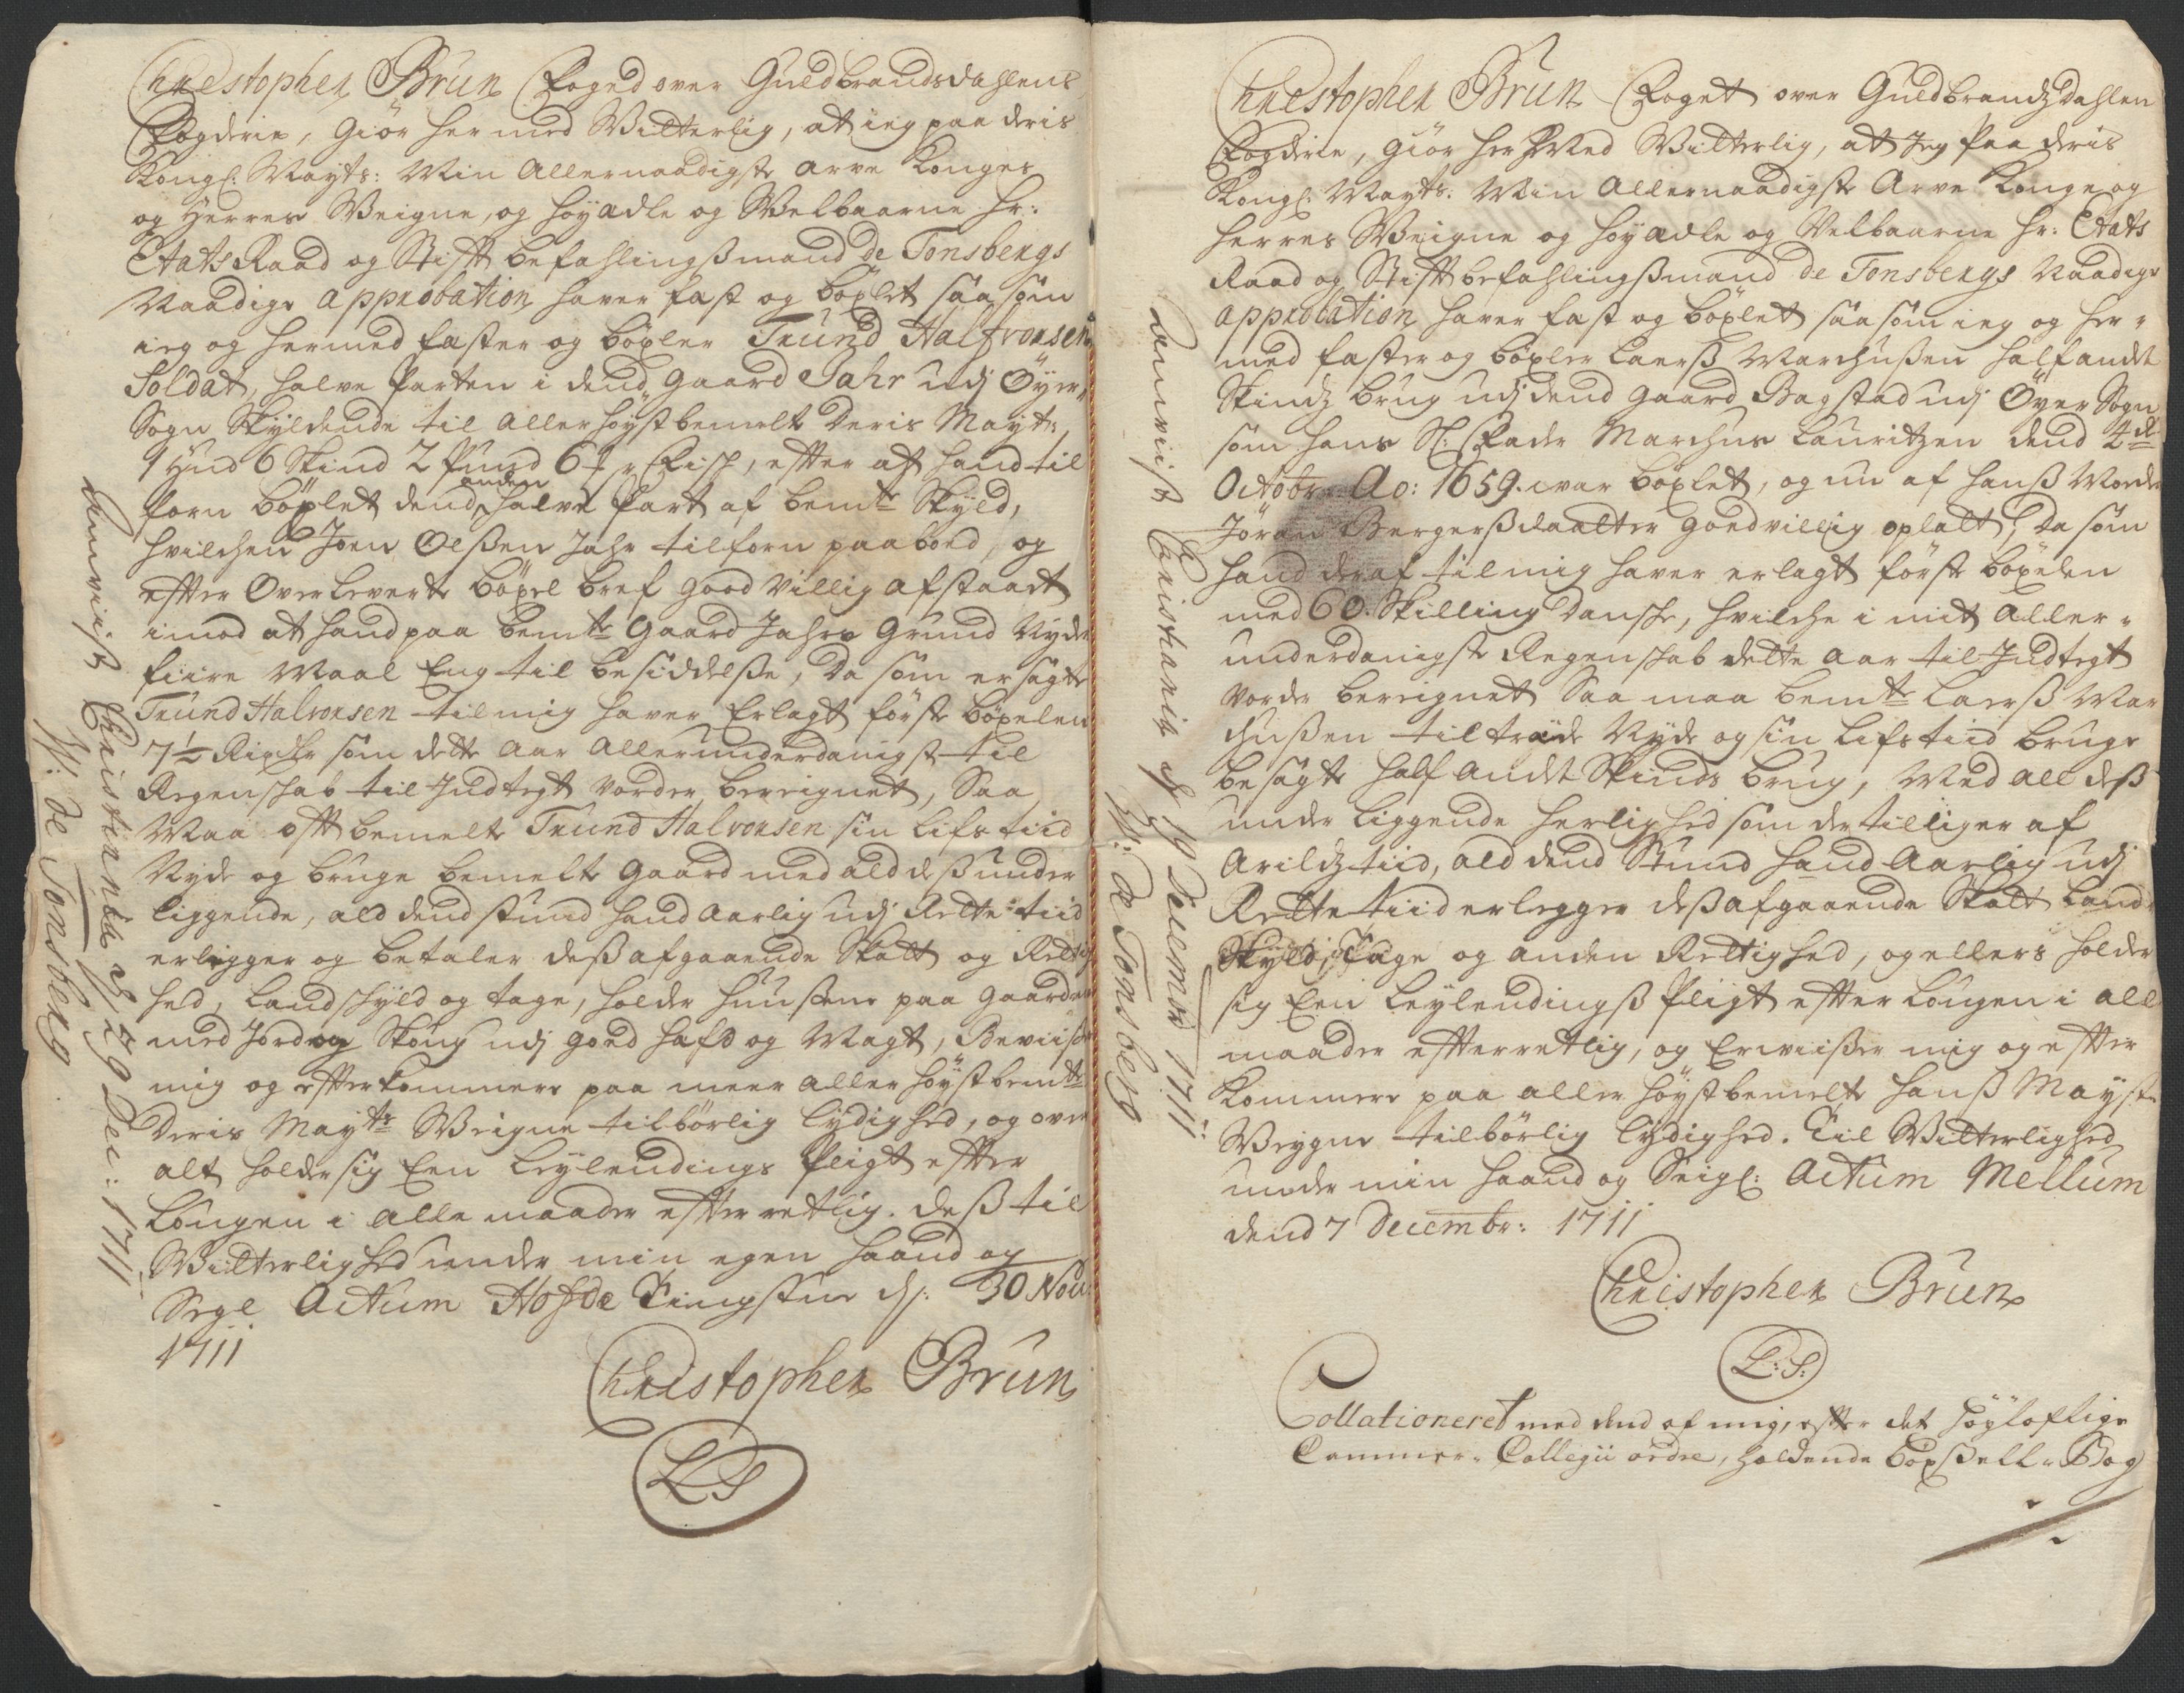 Christopher Brun Foged over Guldbrandsdahlens
Fogderie, Giör her med Vitterlig, at ieg paa deris
Kongl: Mayts: Min Allernaadigste arve Konges
og Herres Weigne, og höyædle og Velbaarne hr:
Etats Raad og Stifft befahlingßmand de Tonsbergs
Naadige approbation haver fæst og böxlet saasom
ieg og hermed fæster og böxler Trund Halfvorsen
Soldat, halve parten i dend gaard Jahr udj Öyer,,
Sogn Skyldende til allerhöystbemelte Deris Mayt:
1 Hud 6 Skind 2 pund 6 Fisch, efter at hand til
forn böxlet dend anden halve part af bemte Skyld,
hvilchen Joen Olßen Jahr tilforn paaboed, og
efter Overleverte böxel bref good villig afstaaet
imod at hand paa bemte Gaard Jahrs Grund Nyder
fiire Maal Eng til besiddelße, Da som ersagte
Trund Halvorsen til mig haver Erlagt förste böxelen
7½ Rixdr som dette Aar allerunderdanigst til
Regenschab til Indtegt vorder bereignet, Saa
Maa offtbemelte Trund Halvorsen sin lifs tiid
Nyde og bruge bemelte gaard med ald deß under
liggende, ald dend stund hand Aarlig udj Rette tiid
erlegger og betaler deß afgaaende Skatt og Rettig
hed, Landschyld og tage, holder huusene paa gaarden
med Jord og Skoug udj goed hafd og Magt, Beviiser
mig og efterkommere paa meer aller höystbemte
Deris Mayts Weigne tilbörlig lydighed, og over
alt holder sig Een leylendings pligt efter
Lougen i alle maader efterretlig. Deß til
Vitterlighed under min egen haand og
Segl Actum Hofde Tingstue dj: 30 Nov:
1711
Christopher Brun
LS
Anviist Christiania dj 29 Dec: 1711
W: de Tonsberg
Christopher Brun Foget over Guldbrandzdahlen
Fogderie, giör her Med Vitterlig, at Jeg paa deris
Kongl: Mayts: Min Allernaadigste Arve Konge og
Herres Weigne og höyædle og Velbaarne hr: Etats
Raad og Stifft befahlingßmand de Tonsbergs Naadige
approbation haver fæst og böxlet saasom ieg og her,,
med fæster og böxler Laerß Marchußen halfandet
Skindz brug udj dend gaard Bagstad udj Öyer Sogn
som hans Sl: Fader Marchus Lauritzen dend 4de
Octobr: Ao: 1659. var böxlet, og nu af hanß Moder
Jöran Bergersdaatter goedvillig oplatt, Da som
hand deraf til mig haver erlagt förste böxelen
med 60. Skilling Dansche, hvilche i mit Aller,,
underdanigste Regenschab dette Aar til Indtegt
vorder bereignet Saa maa bemte Laerß Mar
chußen tiltræde Nyde og sin lifs tiid bruge
besagte half andet Skinds brug, Med all deß
under liggende herlighed som der tilliger af
Arildz tiid, ald dend Stund hand Aarlig udj
Rette tiid erlegger deß afgaaende Skatt Land
Skyld, Tage og anden Rettighed, og ellers holder
sig Een leylendingß pligt efter Lougen i all
maader efterretlig, og Erviißer mig og efter
kommere paa aller höystbemelte hanß Mayste
Weygne tilbörlig lydighed. Til Vitterlighed
under min haand og Seigl: Actum Mellum
dend 7 Decembr: 1711
Christopher Brun
L:S:
Collationeret med dend af mig, effter det höyloflige
Cammer-Collegii ordre, holdende böxßell-Bog
Anviist Christania dj 19 Decembr 1711
W: de Tonsberg